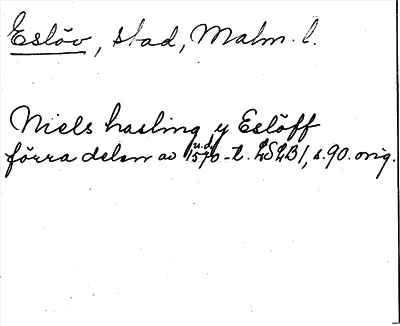 Eslöv, stad, Malm. l.
Niels hasling y Eslöff
u.d.
förra delen av 1570-t. LSLB1, s. 90. orig.